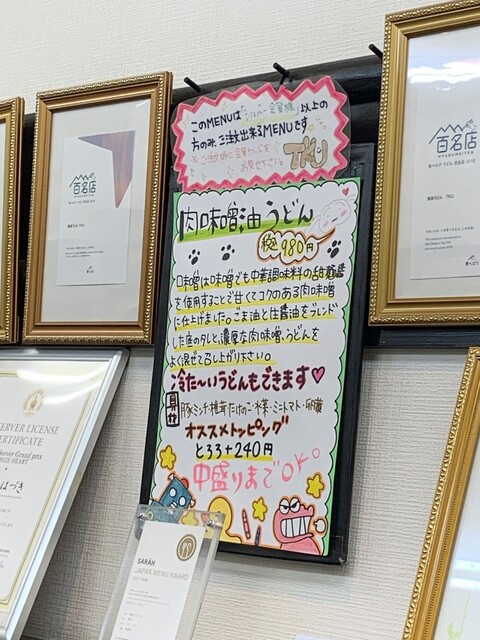 このMENUは「シルバー会員様」以上の
方のみ、ご注文出来るMENUです
お見せ下さい。
百名店
百名店
HYAKUMEITEN
肉味噌油うどん
税込980円
肉味噌は味噌でも中華調味料の甜麺醤
を使用することで甘くてコクのある肉味噌
に仕上げました。ごま油と生醤油をブレンド
した底のタレと濃厚な肉味噌、うどんを
よく混ぜて召し上がり下さい。
冷た〜いうどんもできます♥
具材
豚ミンチ・椎茸・たけのこ・水菜・ミニトマト・卵黄
オススメトッピング
とろろ+240円
中盛りまでOK。
SERVER LICENSE
CERTIFICATE
Server Grand prix
BRONZE HEART
はづき
SARAH
JAPAN MENU AWARD